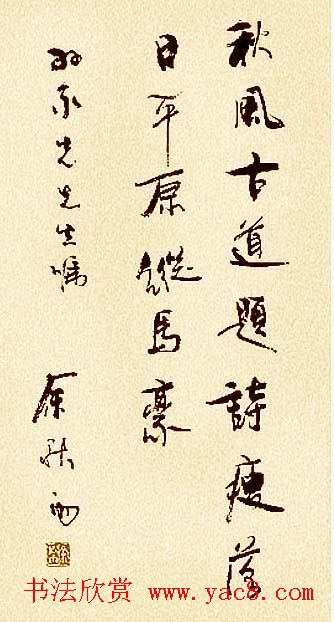 秋風古道題詩瘦落
日平原縱馬豪
先生嘱
余秋雨
书法欣赏 www.yac8.com